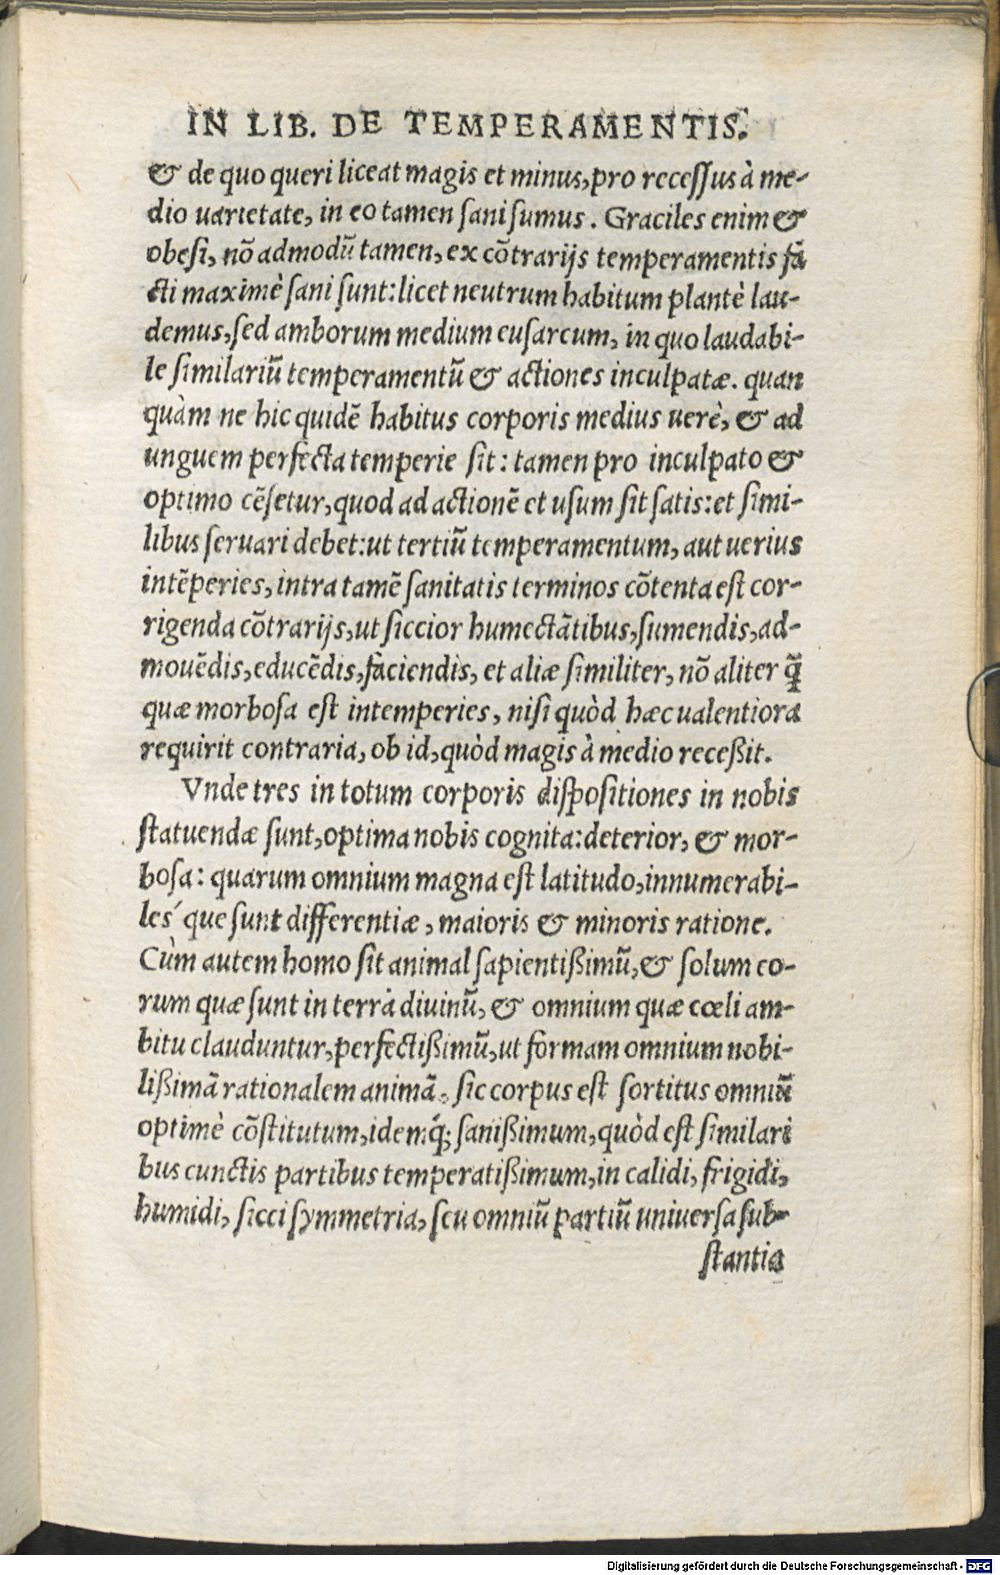 IN LIB. DE TEMPERAMENTIS.
& de quo queri liceat magis et minus, pro recessus à me-
dio uarietate, in eo tamen sani sumus. Graciles enim &
obesi, nõ admodũ tamen, ex cõtrarijs temperamentis fa
cti maximè sani sunt: licet neutrum habitum planè lau-
demus, sed amborum medium eusarcum, in quo laudabi-
le similariũ temperamentũ & actiones inculpatæ. quan
quàm ne hic quidẽ habitus corporis medius uerè, & ad
unguem perfecta temperie sit: tamen pro inculpato &
optimo cẽsetur, quod ad actionẽ et usum sit satis: et simi-
libus seruari debet: ut tertiũ temperamentum, aut uerius
intẽperies, intra tamẽ sanitatis terminos cõtenta est cor-
rigenda cõtrarijs, ut siccior humectãtibus, sumendis, ad-
mouẽdis, educẽdis, faciendis, et aliæ similiter, nõ aliter q̃
quæ morbosa est intemperies, nisi quòd hæc ualentiora
requirit contraria, ob id, quòd magis à medio receßit.
Vnde tres in totum corporis dispositiones in nobis
statuendæ sunt, optima nobis cognita: deterior, & mor-
bosa: quarum omnium magna est latitudo, innumerabi-
les´que sunt differentiæ, maioris & minoris ratione.
Cùm autem homo sit animal sapientißimũ, & solum eo-
rum quæ sunt in terra diuinũ, & omnium quæ cœli am-
bitu clauduntur, perfectißimũ, ut formam omnium nobi-
lißimã rationalem animã, sic corpus est sortitus omniũ
optimè cõstitutum, idemq́; sanißimum, quòd est similari
bus cunctis partibus temperatißimum, in calidi, frigidi,
humidi, sicci symmetria, seu omniũ partiũ uniuersa sub-
stantia
Digitalisierung gefördert durch die Deutsche Forschungsgemeinschaft - DFG